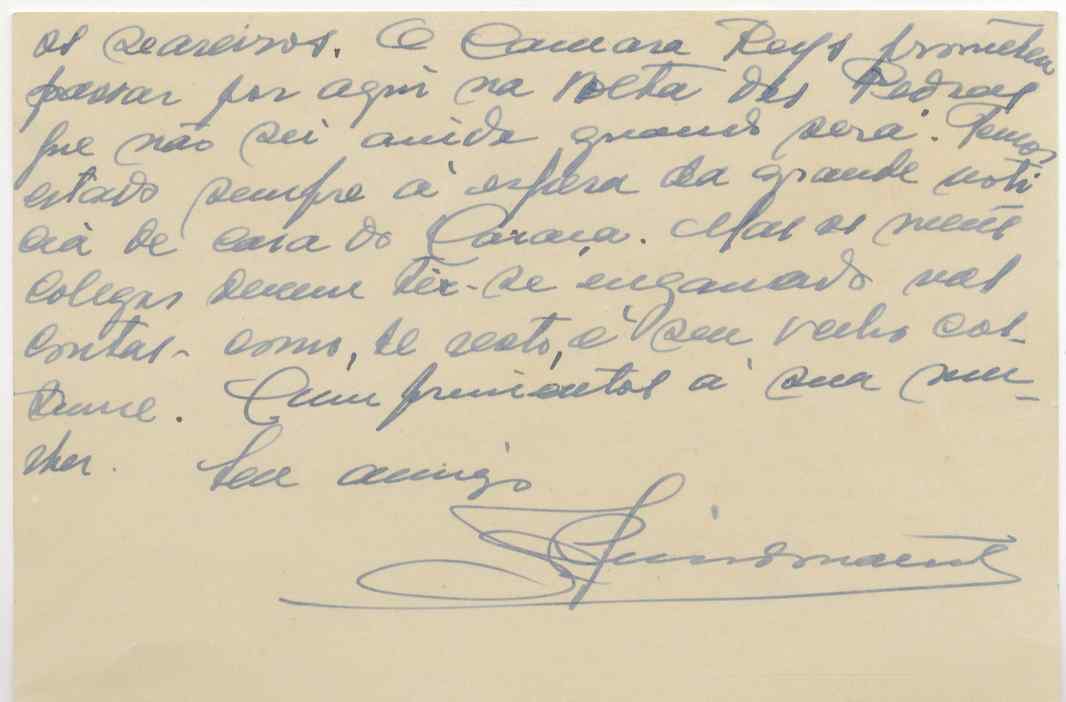 os seareiros. O Camara Reys prometeu
passar por aqui na volta das Pedras
que não sei ainda quando será. Temos
estado sempre à espera da grande notí
cia de casa do Caraça. Mas os meus
colegas devem ter-se enganado nas
contas - como, de resto, é seu velho cos-
tume. Cumprimentos à sua mu-
lher. Seu amigo